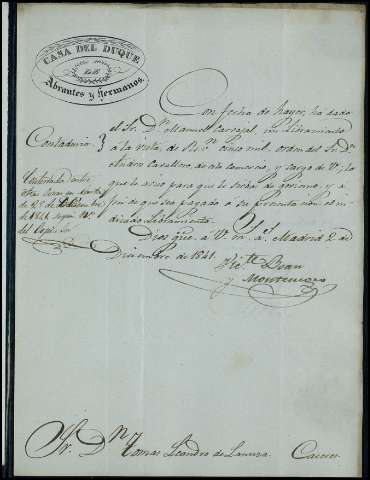 CASA DEL DUQUE
DE
Abrantes y Hermanos.
Contaduria
Con fecha de hayer, ha dado
el Sr. Dn. Manuel Carvajal, un Libramiento
a la vista de Rs. vn. cinco mil, orden del Sr. Dn.
Alvaro Cavallero, de este comercio, y cargo de V.; lo
que le aviso para que le sirva de govierno, y a
fin de que sea pagado a su presentacion el in-
dicado Libramiento.
Dios gue. a V. m. a. Madrid 2 de
Diciembre de 1841.
Victe.
y Montenegro
Contestada
de 1841
del Copiador
Sr. Dn. Tomas Leandro de Lanuza. Caceres